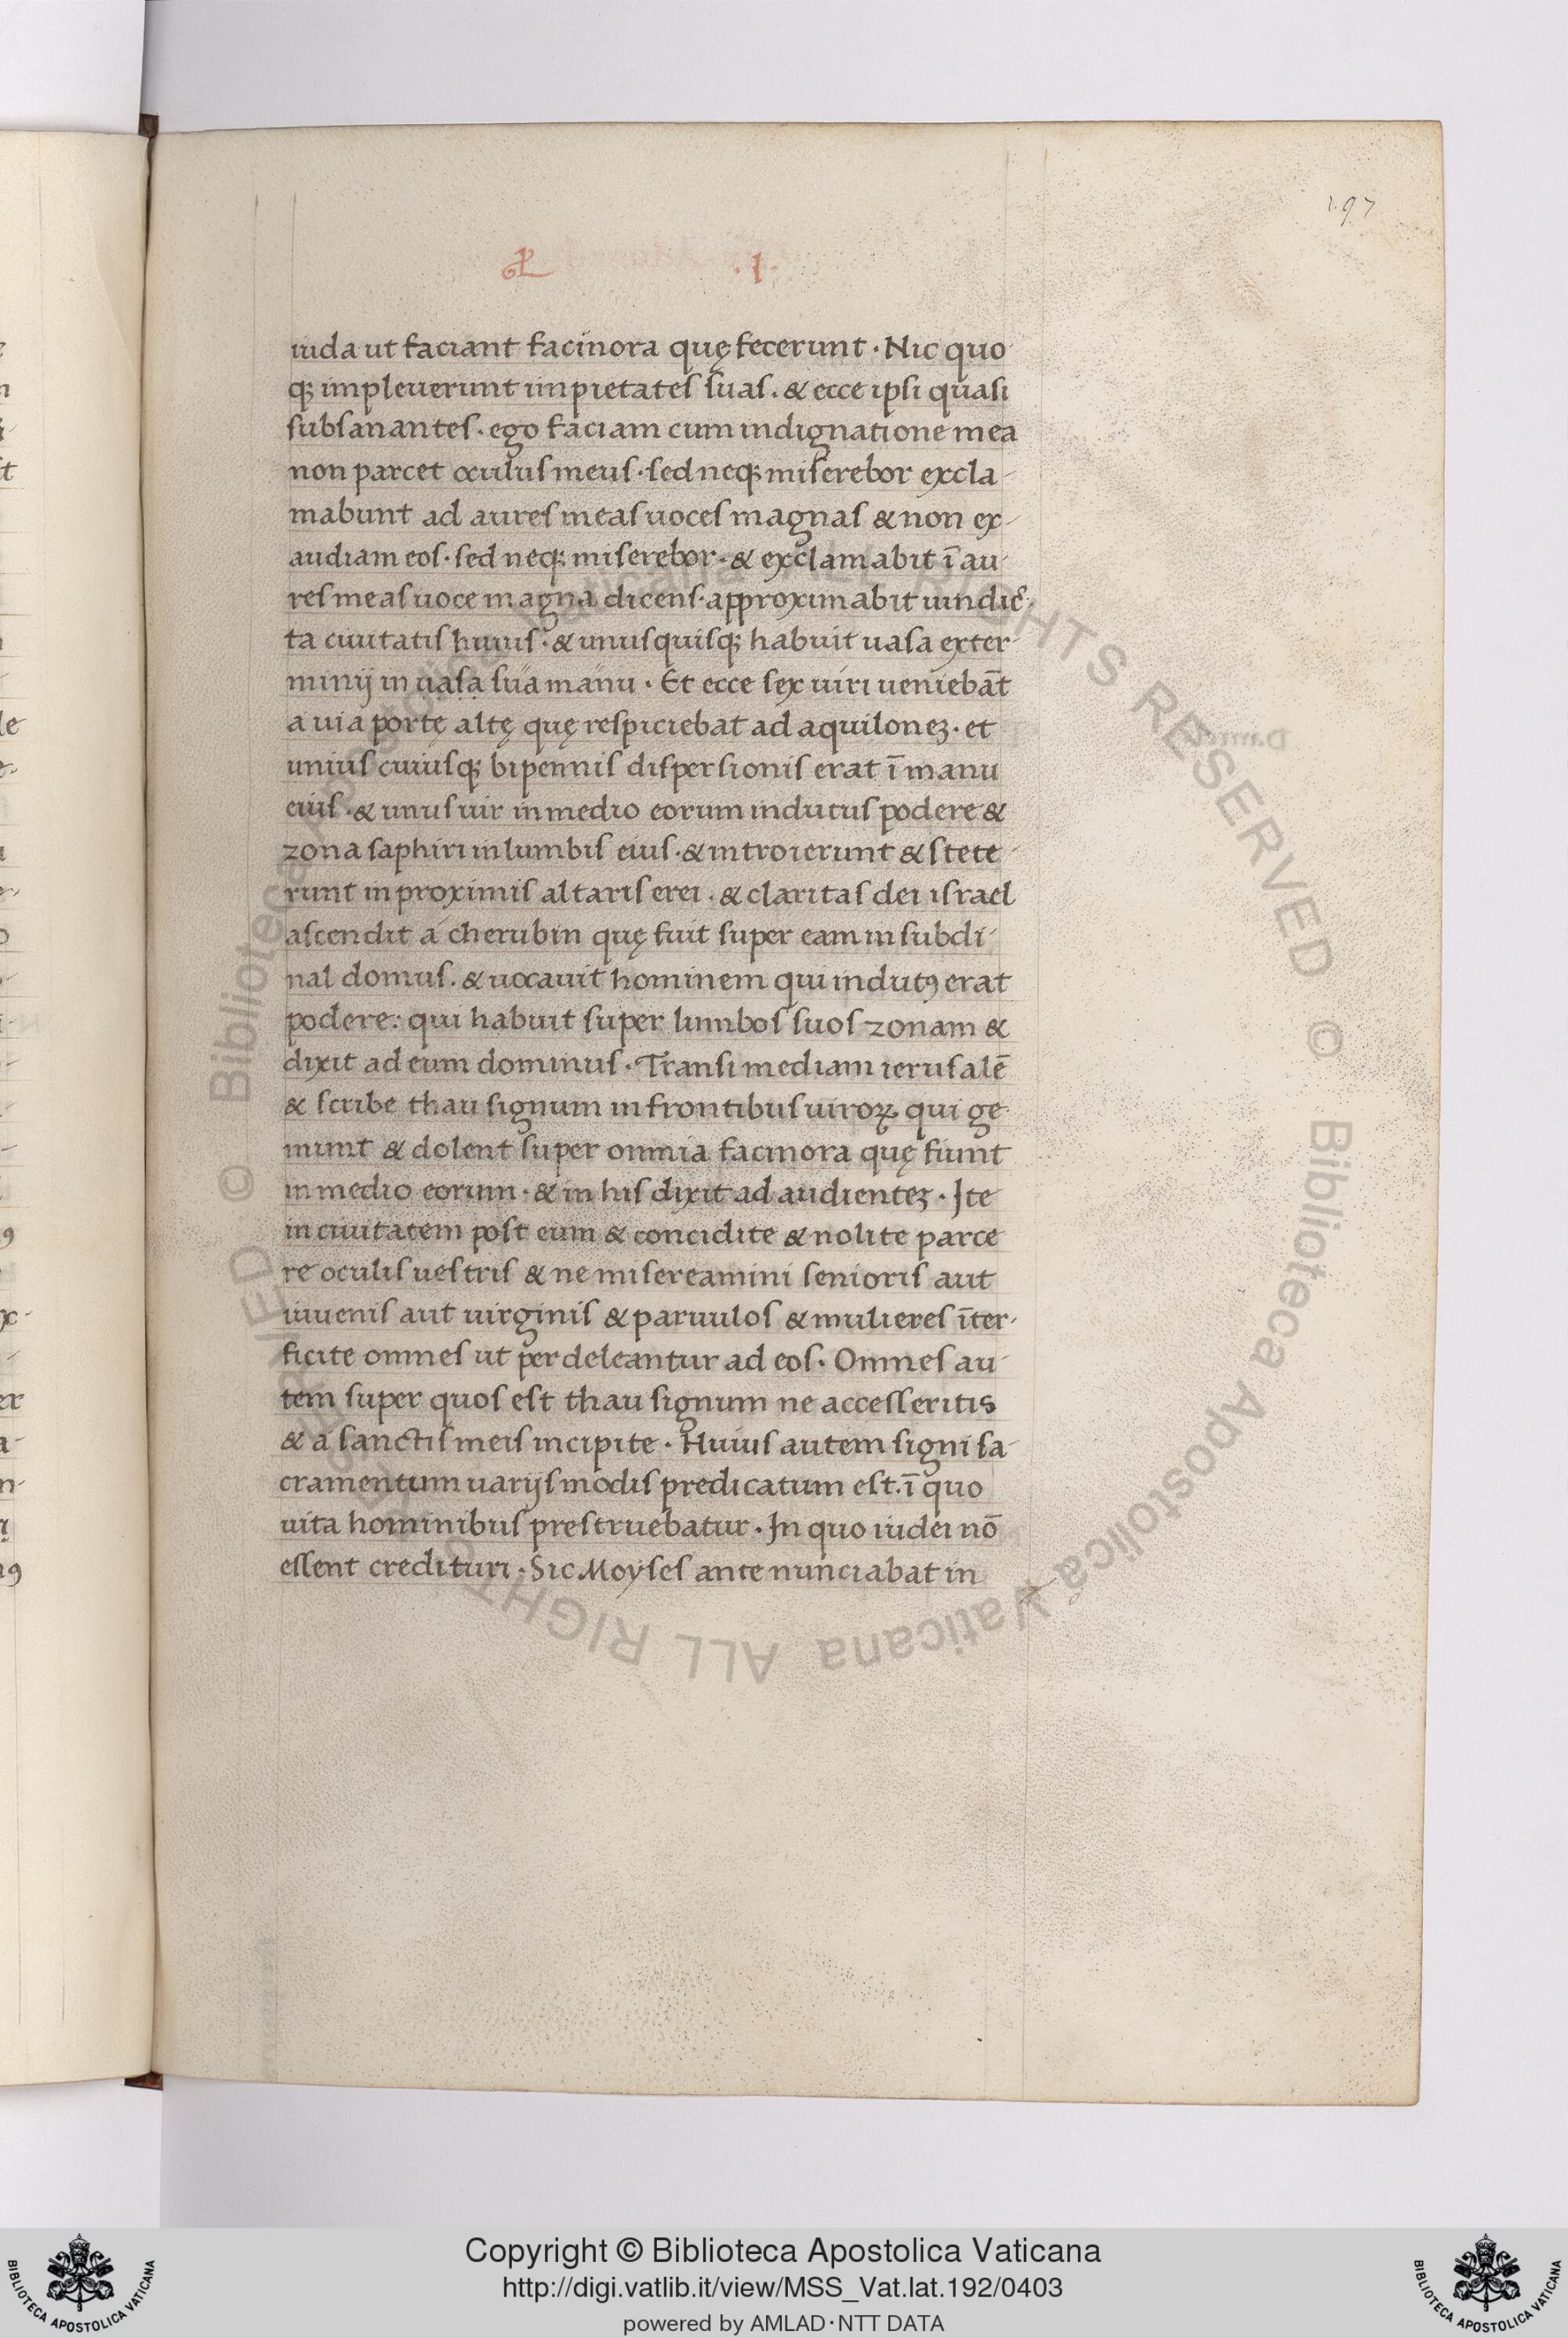 197
.I.
iuda ut faciant facinora quę fecerunt. Nic quo
qꝫ impleuerunt impietates suas. & ecce ipsi quasi
subsanantes. ego faciam cum indignatione mea
non parcet oculus meus. sed neqꝫ miserebor excla-
mabunt ad aures meas uoces magnas & non ex-
audiam eos. sed neqꝫ miserebor. & exclamabit ī au-
res meas uoce magna dicens. approximabit uindic-
ta ciuitatis huius. & unusquisqꝫ habuit uasa exter-
minij in uasa sua manu. Et ecce sex uiri ueniebāt
a uia portę altę quę respiciebat ad aquiloneꝫ. et
unius cuiusqꝫ bipennis dispersionis erat ī manu
eius. & unus uir in medio eorum indutus podere &
zona saphiri in lumbis eius. & introierunt & stete-
runt in proximis altaris erei. & claritas dei israel
ascendit a cherubin quę fuit super eam in subdi-
nal domus. & uocauit hominem qui indutꝰ erat
podere: qui habuit super lumbos suos zonam &
dixit ad eum dominus. Transi mediam ierusalē
& scribe thau signum in frontibus uiroꝝ qui ge-
munt & dolent super omnia facinora quę fiunt
in medio eorum. & in his dixit ad audienteꝫ. Ite
in ciuitatem post eum & concidite & nolite parce
re oculis uestris & ne misereamini senioris aut
iuuenis aut uirginis & paruulos & mulieres īter-
ficite omnes ut perdeleantur ad eos. Omnes au-
tem super quos est thau signum ne accesseritis
& a sanctis meis incipite. Huius autem signi sa-
cramentum uarijs modis predicatum est. ī quo
uita hominibus prestruebatur. In quo iudei nō
essent credituri. Sic Moyses ante nunciabat in
© Biblioteca Apostolica Vaticana ALL RIGHTS RESERVED © Biblioteca Apostolica Vaticana ALL RIGHTS RESERVED
Copyright © Biblioteca Apostolica Vaticana
http://digi.vatlib.it/view/MSS_Vat.lat.192/0403
powered by AMLAD·NTT DATA
BIBLIOTECA APOSTOLICA VATICANA
BIBLIOTECA APOSTOLICA VATICANA